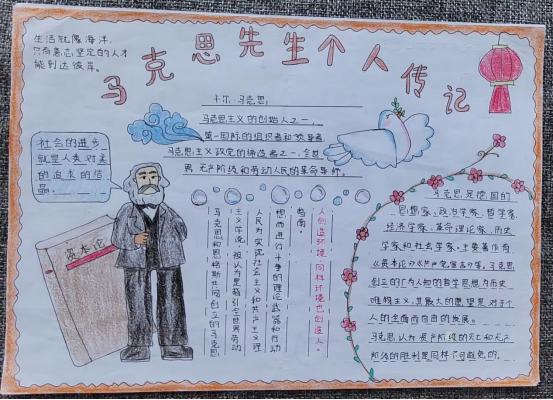 马克思先生个人传记
生活就像海洋，
只有意志坚定的人才
能到达彼岸。
卡尔·马克思
马克思主义的创始人之一，
第一国际的组织者和领导者
马克思主义政党的缔造者之一，全世
界无产阶级和劳动人民的革命导师。
社会的进步
就是人类对美
的追求的结
晶。
资本论
人创造环境，同样环境也创造人。
指南。
想而进行斗争的理论武器和行动
人民为实现社会主义和共产主义理
主义学说，被认为是指引全世界劳动
马克思和恩格斯共同创立的马克思
马克思是德国的
思想家、政治学家、哲学家
经济学家、革命理论家、历史
学家和社会学家。主要著作有
《资本论》《共产党宣言》等。马克思
创立的广为人知的哲学思想为历史
唯物主义，其最大的愿望是对于个
人的全面而自由的发展。
马克思认为资产阶级的灭亡和无产
阶级的胜利是同样不可避免的。